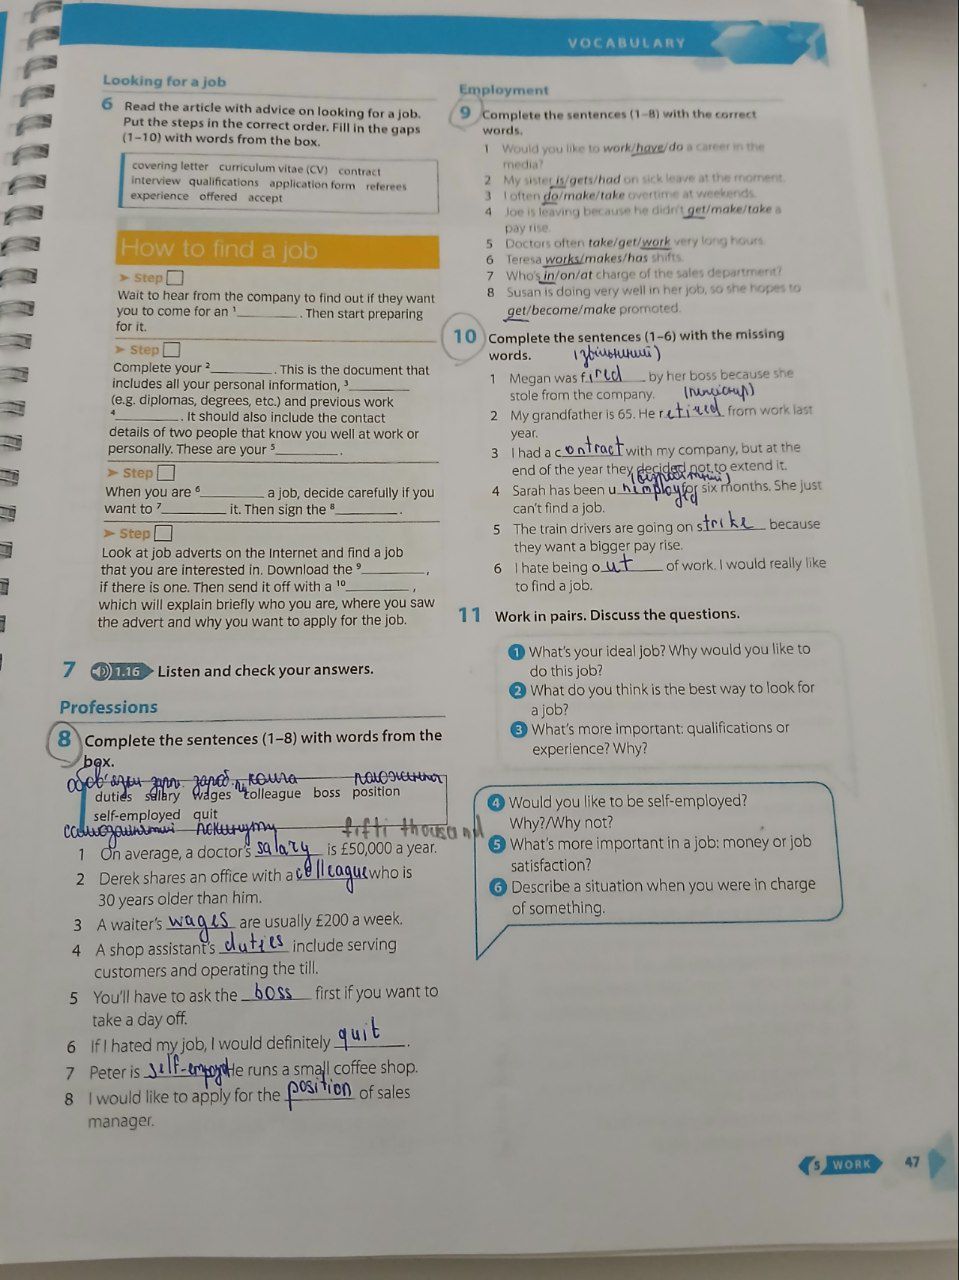 VOCABULARY
Looking for a job
6 Read the article with advice on looking for a job.
Put the steps in the correct order. Fill in the gaps
(1–10) with words from the box.
covering letter curriculum vitae (CV) contract
interview qualifications application form referees
experience offered accept
How to find a job
➤ Step
Wait to hear from the company to find out if they want
you to come for an ¹________. Then start preparing
for it.
➤ Step
Complete your ²________. This is the document that
includes all your personal information, ³________
(e.g. diplomas, degrees, etc.) and previous work
⁴________. It should also include the contact
details of two people that know you well at work or
personally. These are your ⁵________.
➤ Step
When you are ⁶________ a job, decide carefully if you
want to ⁷________ it. Then sign the ⁸________.
➤ Step
Look at job adverts on the Internet and find a job
that you are interested in. Download the ⁹________,
if there is one. Then send it off with a ¹⁰________,
which will explain briefly who you are, where you saw
the advert and why you want to apply for the job.
7 1.16 Listen and check your answers.
Professions
8 Complete the sentences (1–8) with words from the
box.
обов'язки зарп. зароб. колега положення
duties salary wages colleague boss position
self-employed quit
самозайнятий покинути fifti thousand
1 On average, a doctor's salary is £50,000 a year.
2 Derek shares an office with a colleague who is
30 years older than him.
3 A waiter's wages are usually £200 a week.
4 A shop assistant's duties include serving
customers and operating the till.
5 You'll have to ask the boss first if you want to
take a day off.
6 If I hated my job, I would definitely quit.
7 Peter is He runs a small coffee shop.
8 I would like to apply for the position of sales
manager.
Employment
9 Complete the sentences (1–8) with the correct
words.
1 Would you like to work/have/do a career in the
media?
2 My sister is/gets/had on sick leave at the moment.
3 I often do/make/take overtime at weekends.
4 Joe is leaving because he didn't get/make/take a
pay rise.
5 Doctors often take/get/work very long hours.
6 Teresa works/makes/has shifts.
7 Who's in/on/at charge of the sales department?
8 Susan is doing very well in her job, so she hopes to
get/become/make promoted.
10 Complete the sentences (1–6) with the missing
words. (звільнений)
1 Megan was fired by her boss because she
stole from the company.
2 My grandfather is 65. He retired from work last
year.
3 I had a contract with my company, but at the
end of the year they decided not to extend it.
4 Sarah has been for six months. She just
can't find a job.
5 The train drivers are going on strike because
they want a bigger pay rise.
6 I hate being out of work. I would really like
to find a job.
11 Work in pairs. Discuss the questions.
1 What's your ideal job? Why would you like to
do this job?
2 What do you think is the best way to look for
a job?
3 What's more important: qualifications or
experience? Why?
4 Would you like to be self-employed?
Why?/Why not?
5 What's more important in a job: money or job
satisfaction?
6 Describe a situation when you were in charge
of something.
5 WORK 47